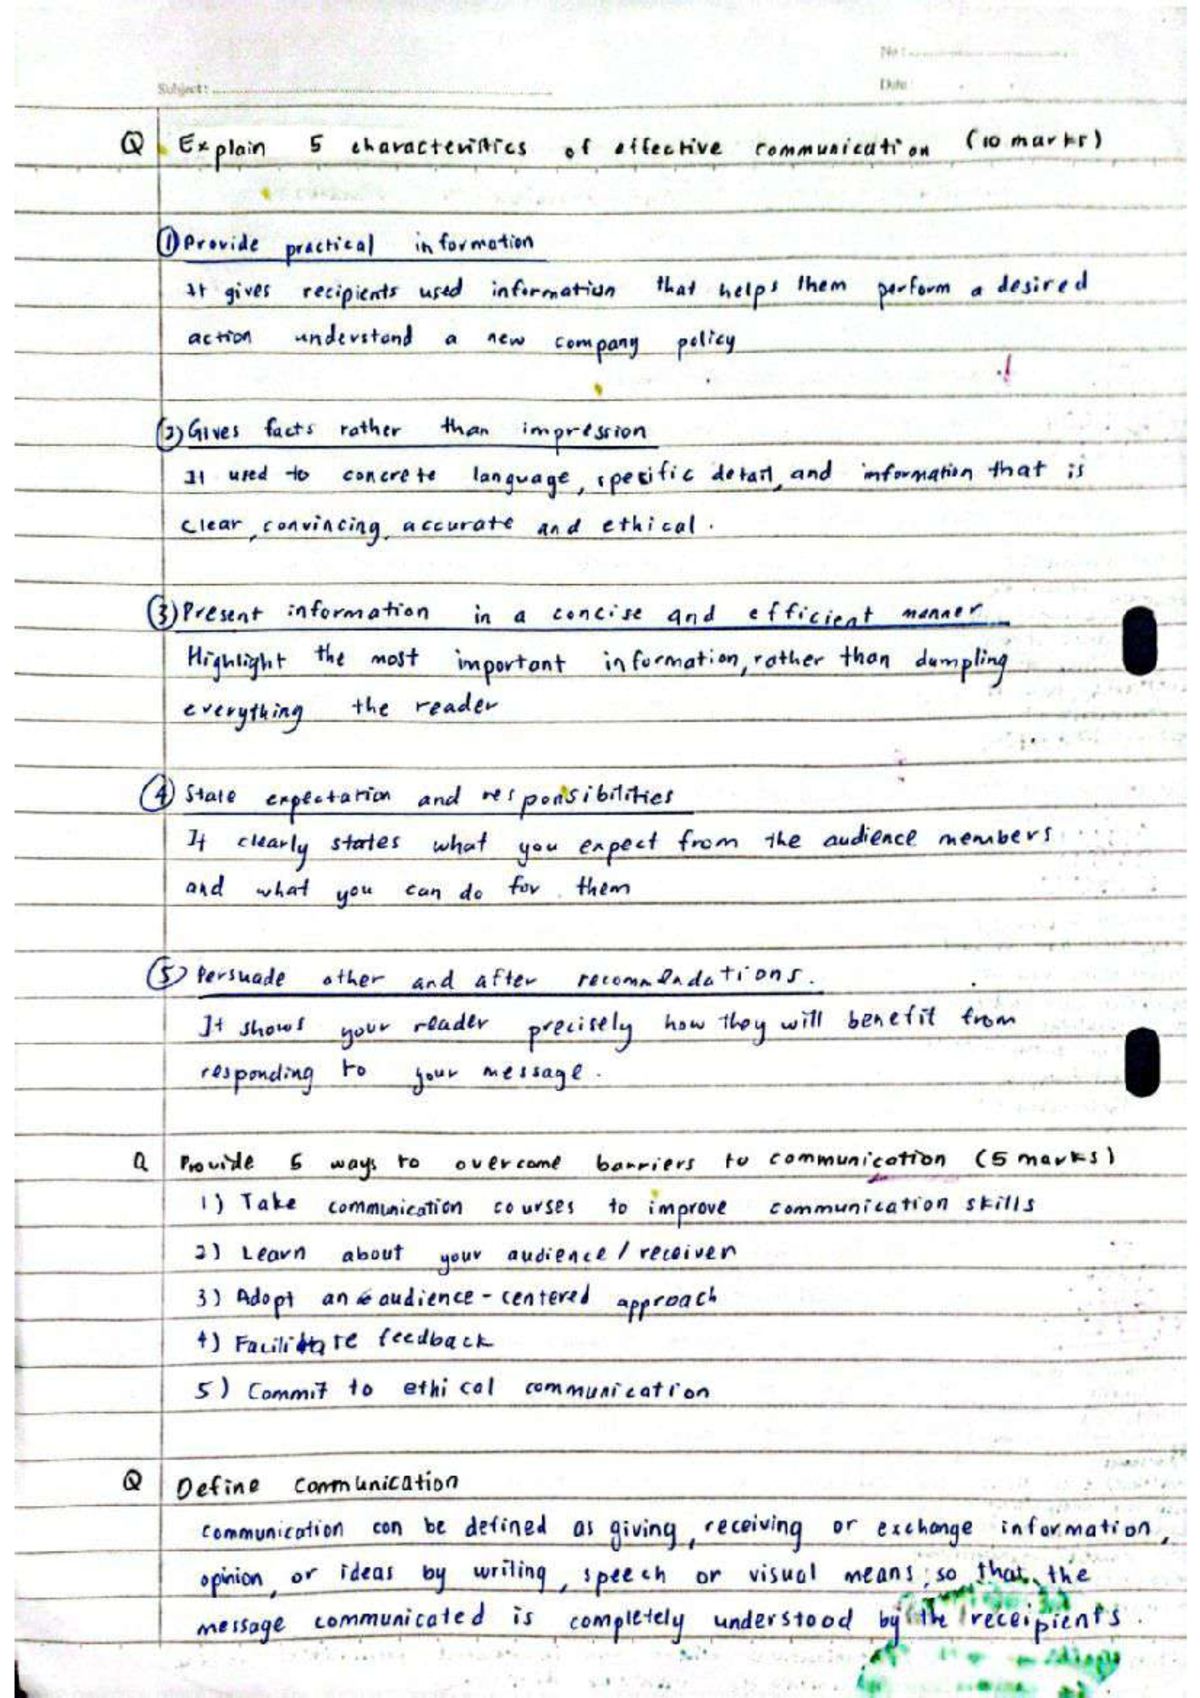 No :
Subject :
Date :
Q Explain 5 characteristics of effective communication (10 marks)
① Provide practical information
It gives recipients used information that helps them perform a desired
action understand a new company policy
② Gives facts rather than impression
It used to concrete language, specific detail, and information that is
clear, convincing, accurate and ethical.
③ Present information in a concise and efficient manner
Highlight the most important information, rather than dumpling
everything the reader
④ State expectation and responsibilities
It clearly states what you expect from the audience members
and what you can do for them
⑤ Persuade other and after recommendations.
It shows your reader precisely how they will benefit from
responding to your message.
Q Provide 5 ways to overcome barriers to communication (5 marks)
1) Take communication courses to improve communication skills
2) Learn about your audience / receiver
3) Adopt an audience-centered approach
4) Facilitate feedback
5) Commit to ethical communication
Q Define Communication
Communication can be defined as giving, receiving or exchange information,
opinion, or ideas by writing, speech or visual means, so that the
message communicated is completely understood by the receipients.